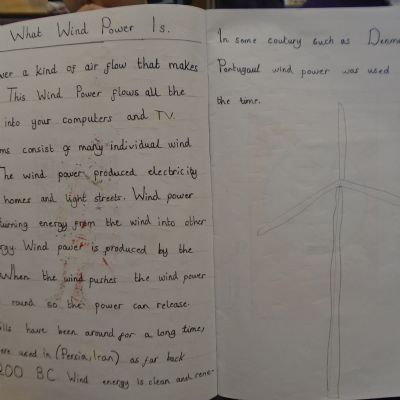 What Wind Power Is.
a kind of air flow that makes
This Wind Power flows all the
into your computers and TV.
consist of many individual wind
The wind power produced electricity
homes and light streets. Wind power
turning energy from the wind into other
Wind power is produced by the
When the wind pushes the wind power
round so the power can release.
have been around for a long time,
used in (Persia, Iran) as far back
200 BC Wind energy is clean and rene-
In some coutury such as
Portugaul wind power was used
the time.